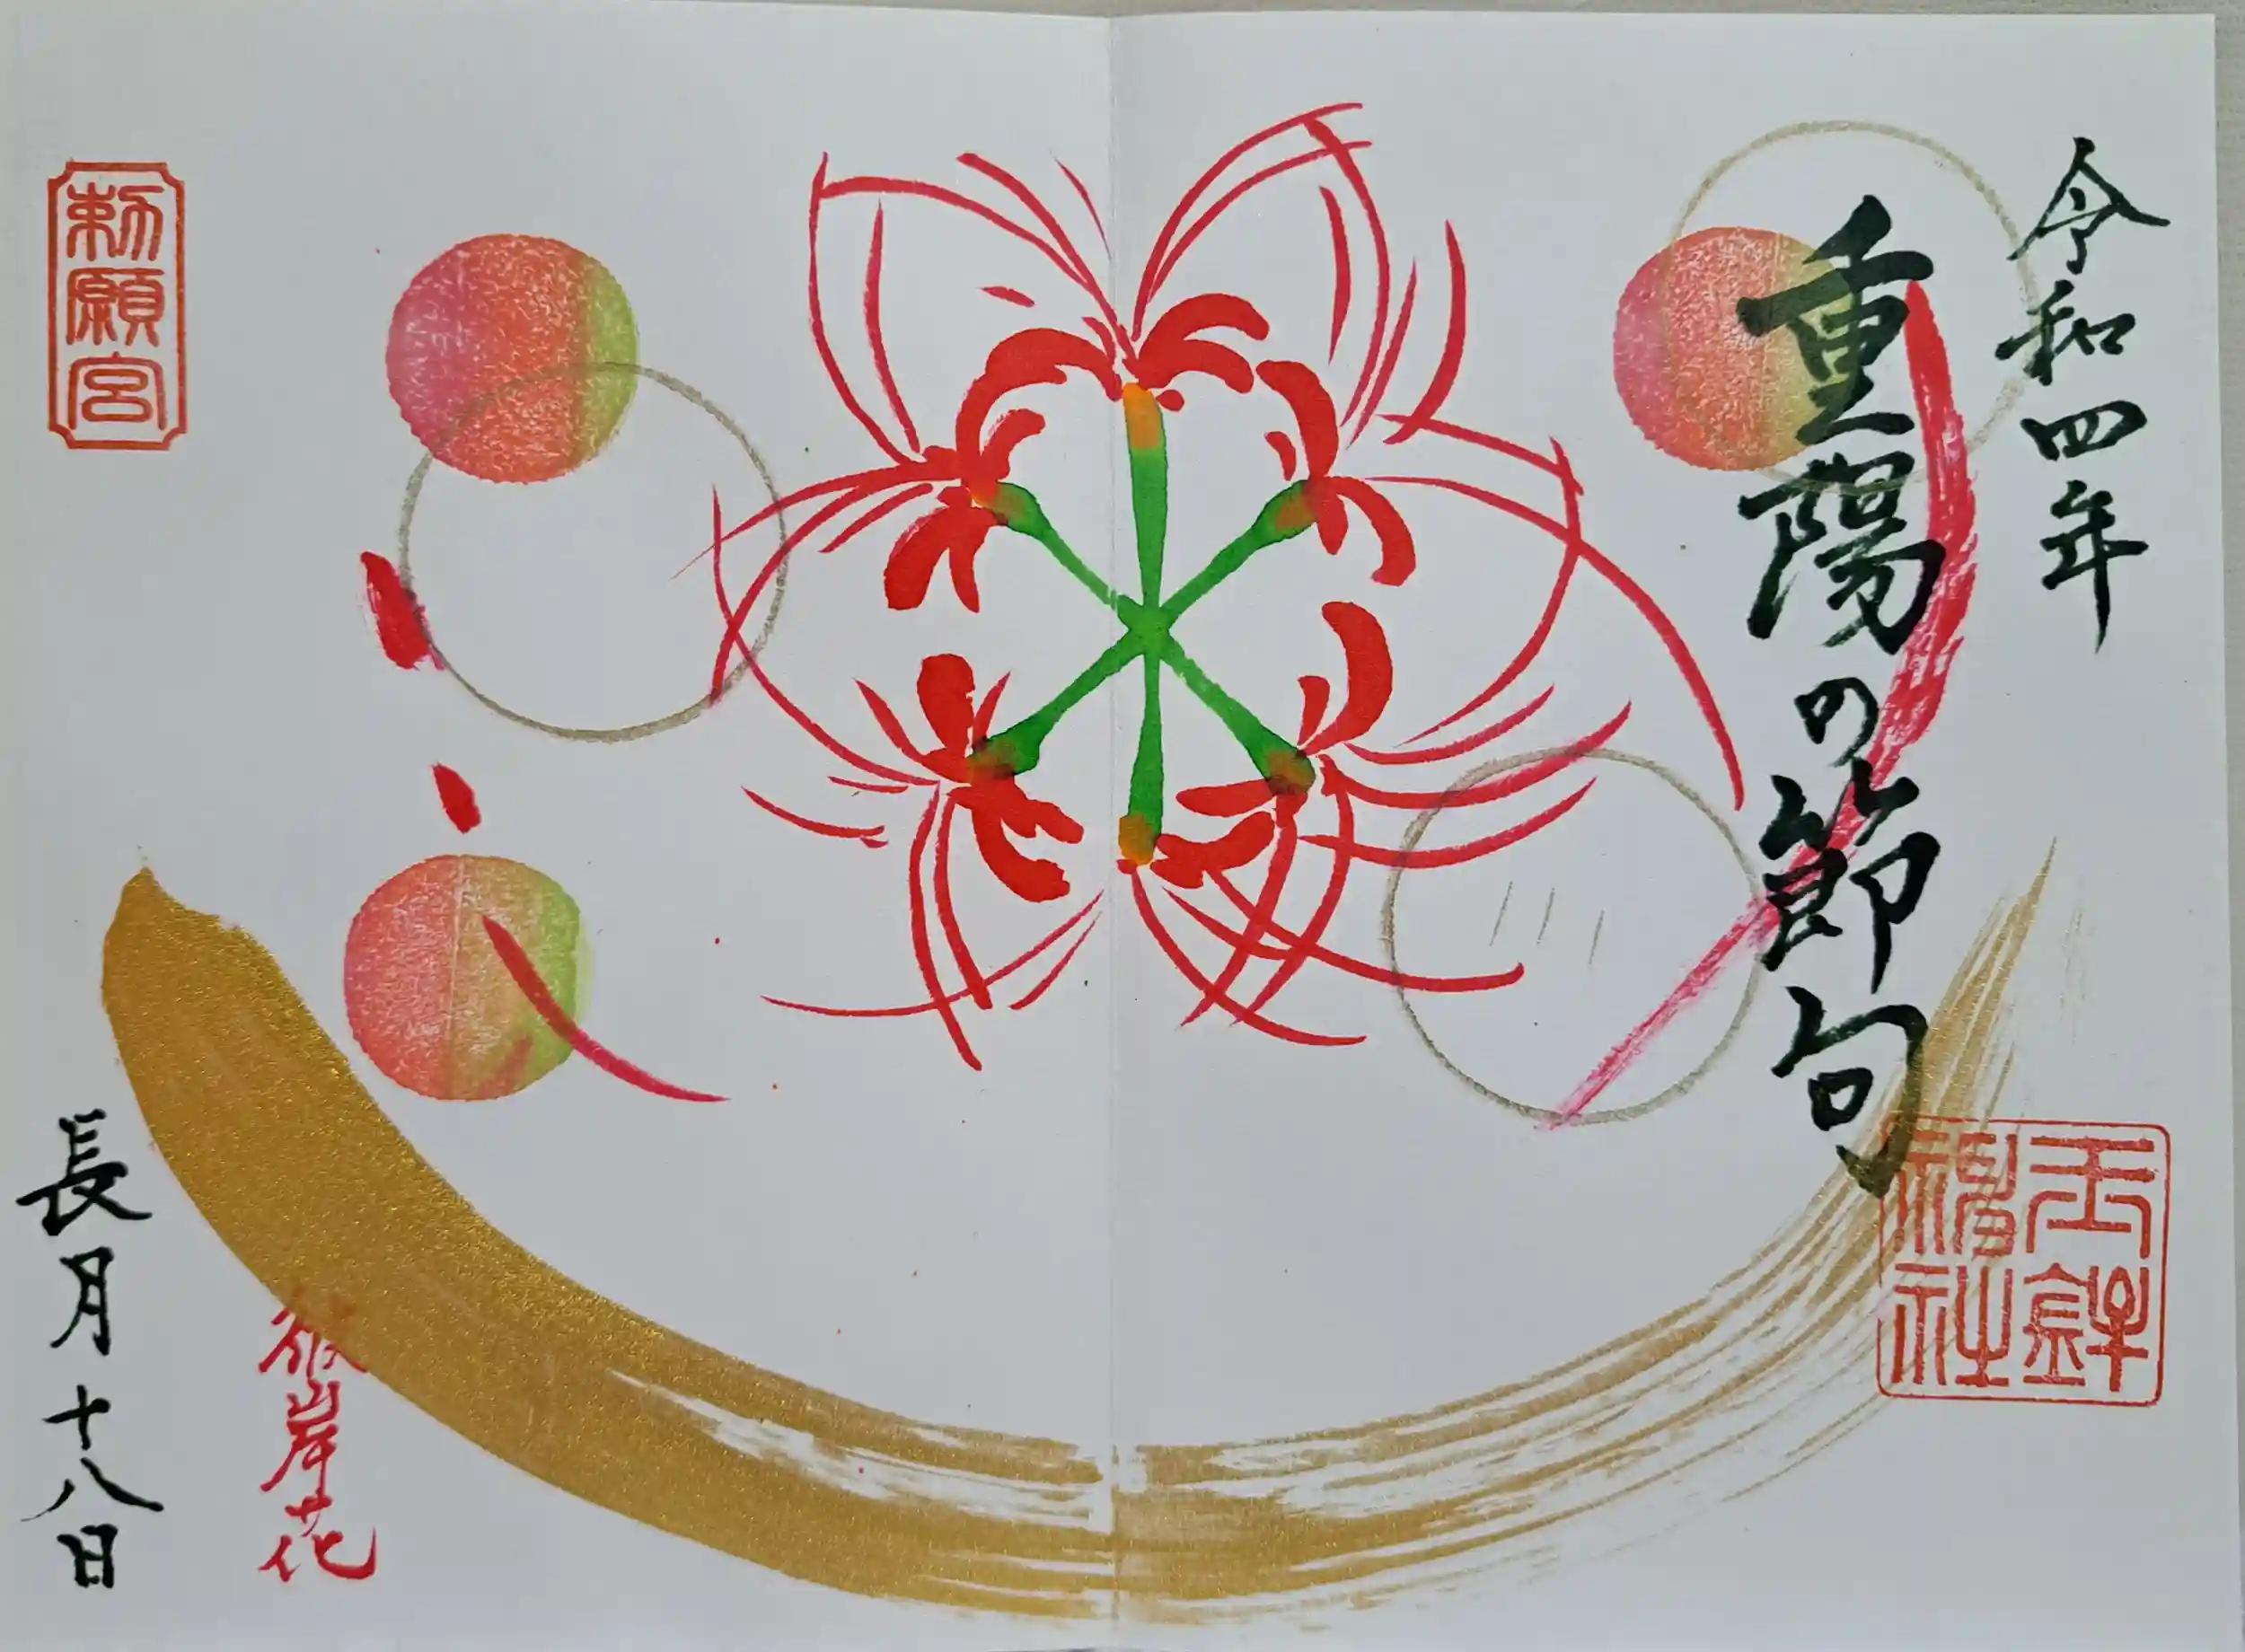 令和四年
重陽の節句
玉鉾
神社
彼岸花
勅願宮
長月十八日